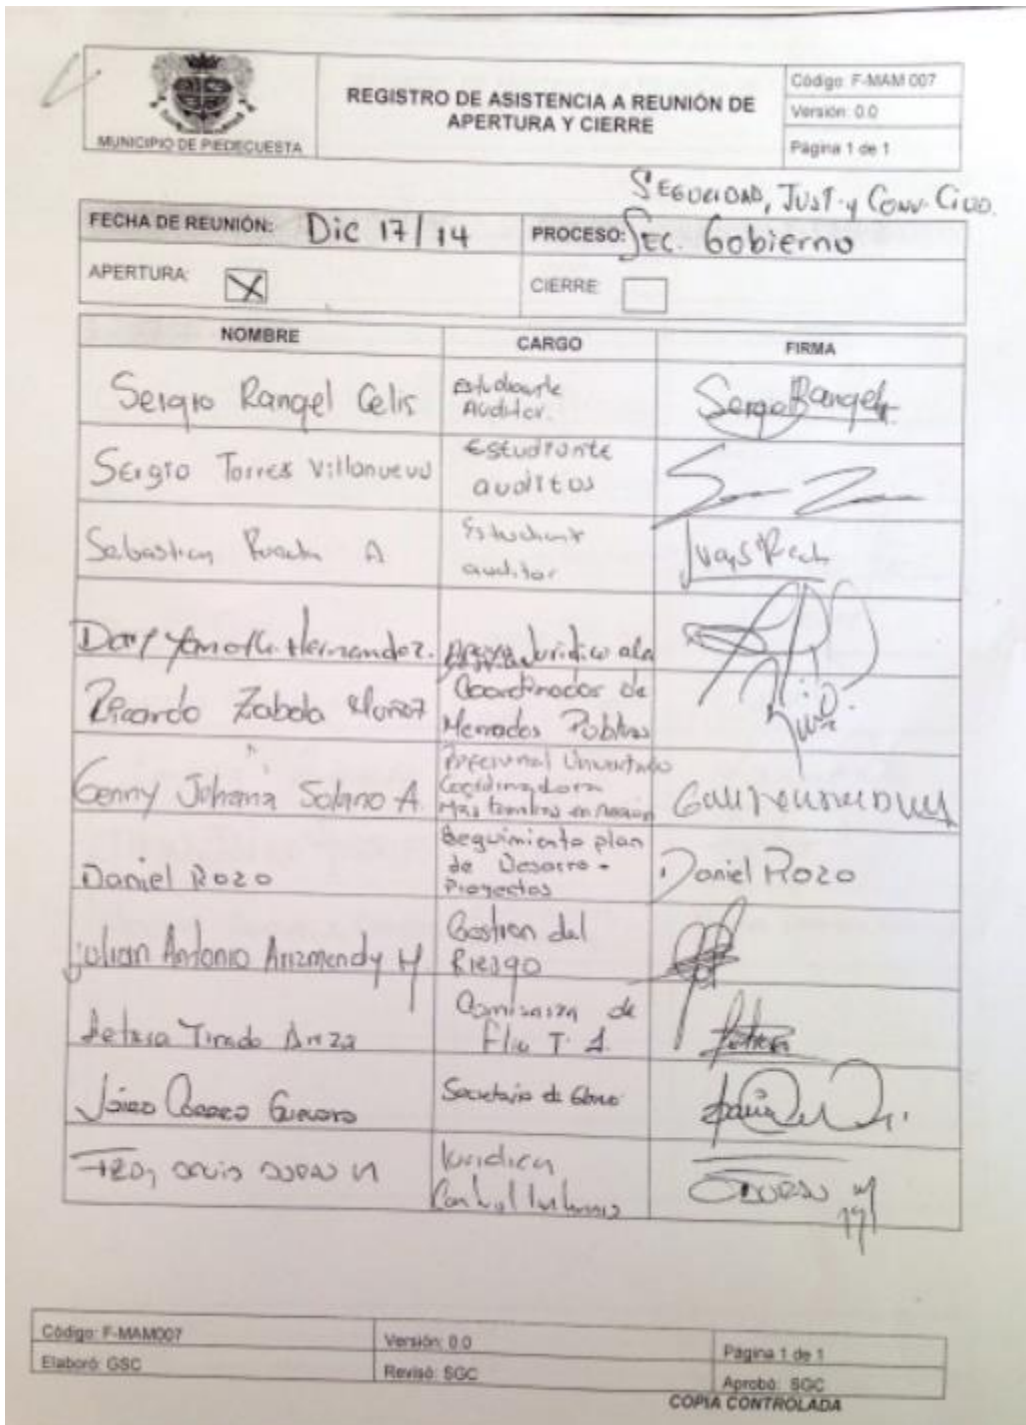 MUNICIPIO DE PIEDECUESTA
REGISTRO DE ASISTENCIA A REUNIÓN DE
APERTURA Y CIERRE
Código: F-MAM 007
Versión: 0.0
Página 1 de 1
SEGURIDAD, JUST. y CONV. CIUD.
FECHA DE REUNIÓN: Dic 17/14 PROCESO: SEC. Gobierno
APERTURA: X CIERRE
NOMBRE CARGO FIRMA
Sergio Rangel Celis Estudiante Auditor. Sergio Rangel
Sergio Torres Villanueva Estudiante auditor
Sebastian A Estudiante auditor
Hernandez. Apoyo Juridico a la
Ricardo Zabala Muñoz Coordinador de
Mercados Publicos
Genny Johana Solano A. Coordinadora
en Acción
Daniel Rozo Seguimiento plan
de Desarro -
Proyectos
Daniel Rozo
Julian Antonio Arizmendy H Gestion del
Riesgo
Tirado Ariza Comisaria de
Flia T. 1.
Jairo Guerrero Secretario de Gbno
DURAN Juridica
Control Interno
Código: F-MAM007 Versión: 0.0 Página 1 de 1
Elaboró: GSC Revisó: SGC Aprobó: SGC
COPIA CONTROLADA